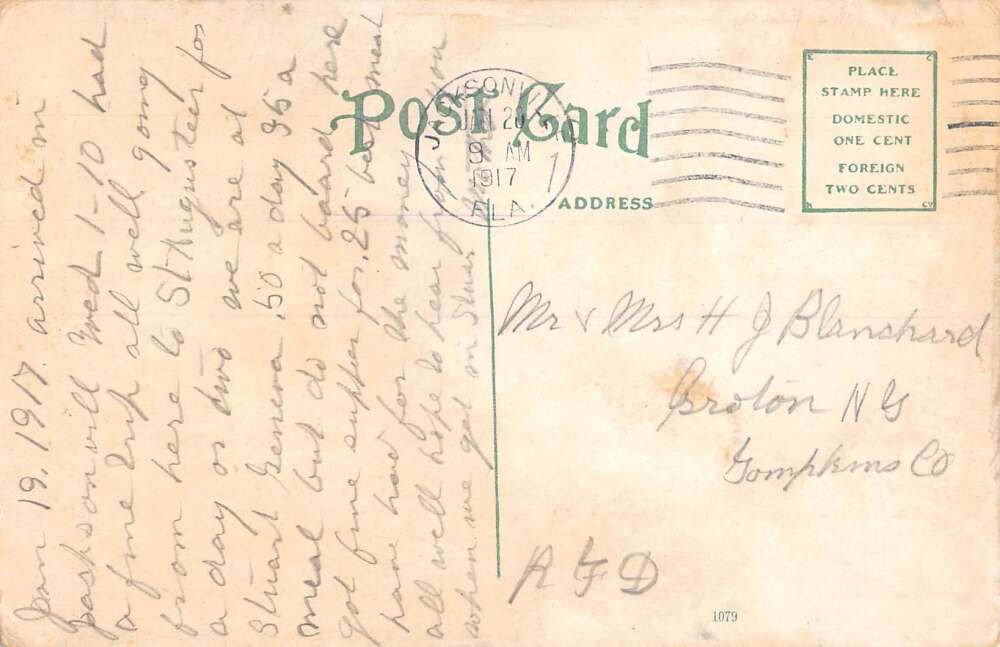 Jan 19, 1917. arrived in
Jacksonvill Wed 1-10 had
a fine trip all well going
from here to St Augusteer for
a day or two we are at
Stuart Geneva .50 a day 35 a
meal but do not board here
got fine supper for .25 best meal
have had for the money
all well hope to hear from you
when we get in
Post Card
JACKSONV
JAN 20
9 AM
1917
FLA.
1
PLACE
STAMP HERE
DOMESTIC
ONE CENT
FOREIGN
TWO CENTS
ADDRESS
Mr & Mrs H J Blanchard
Groton N Y
Tompkins Co
R F D
1079